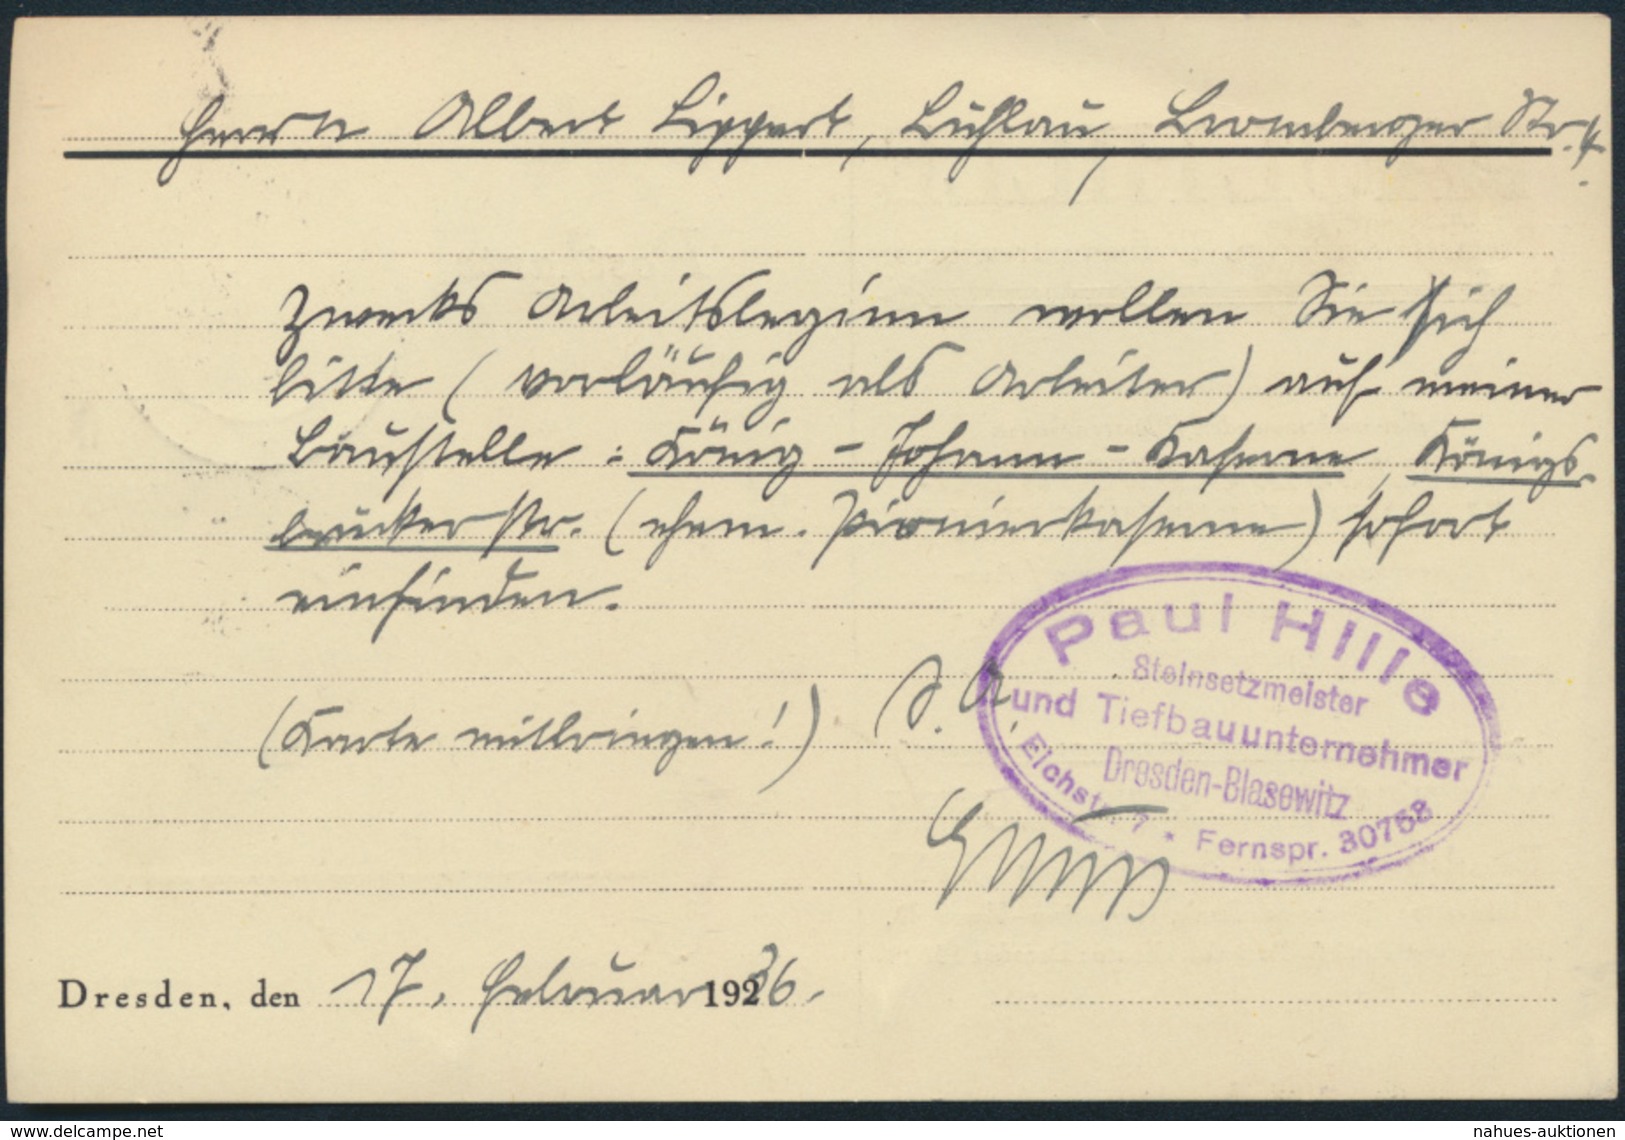 Herrn Albert Lippert, Bühlau, Bromberger Str. 4.
Zwecks Arbeitsbeginn wollen Sie sich
bitte (vorläufig als Arbeiter) auf meiner
Baustelle: König-Johann-Kaserne, Königs-
brückerstr. (ehem. Pionierkaserne) sofort
einfinden.
(Karte mitbringen!)
I. A.
Paul Hille
Steinsetzmeister
und Tiefbauunternehmer
Dresden-Blasewitz
Eichstr. 7 * Fernspr. 30768
Dresden, den 17. Februar 1936.
www.delcampe.net
nahues-auktionen